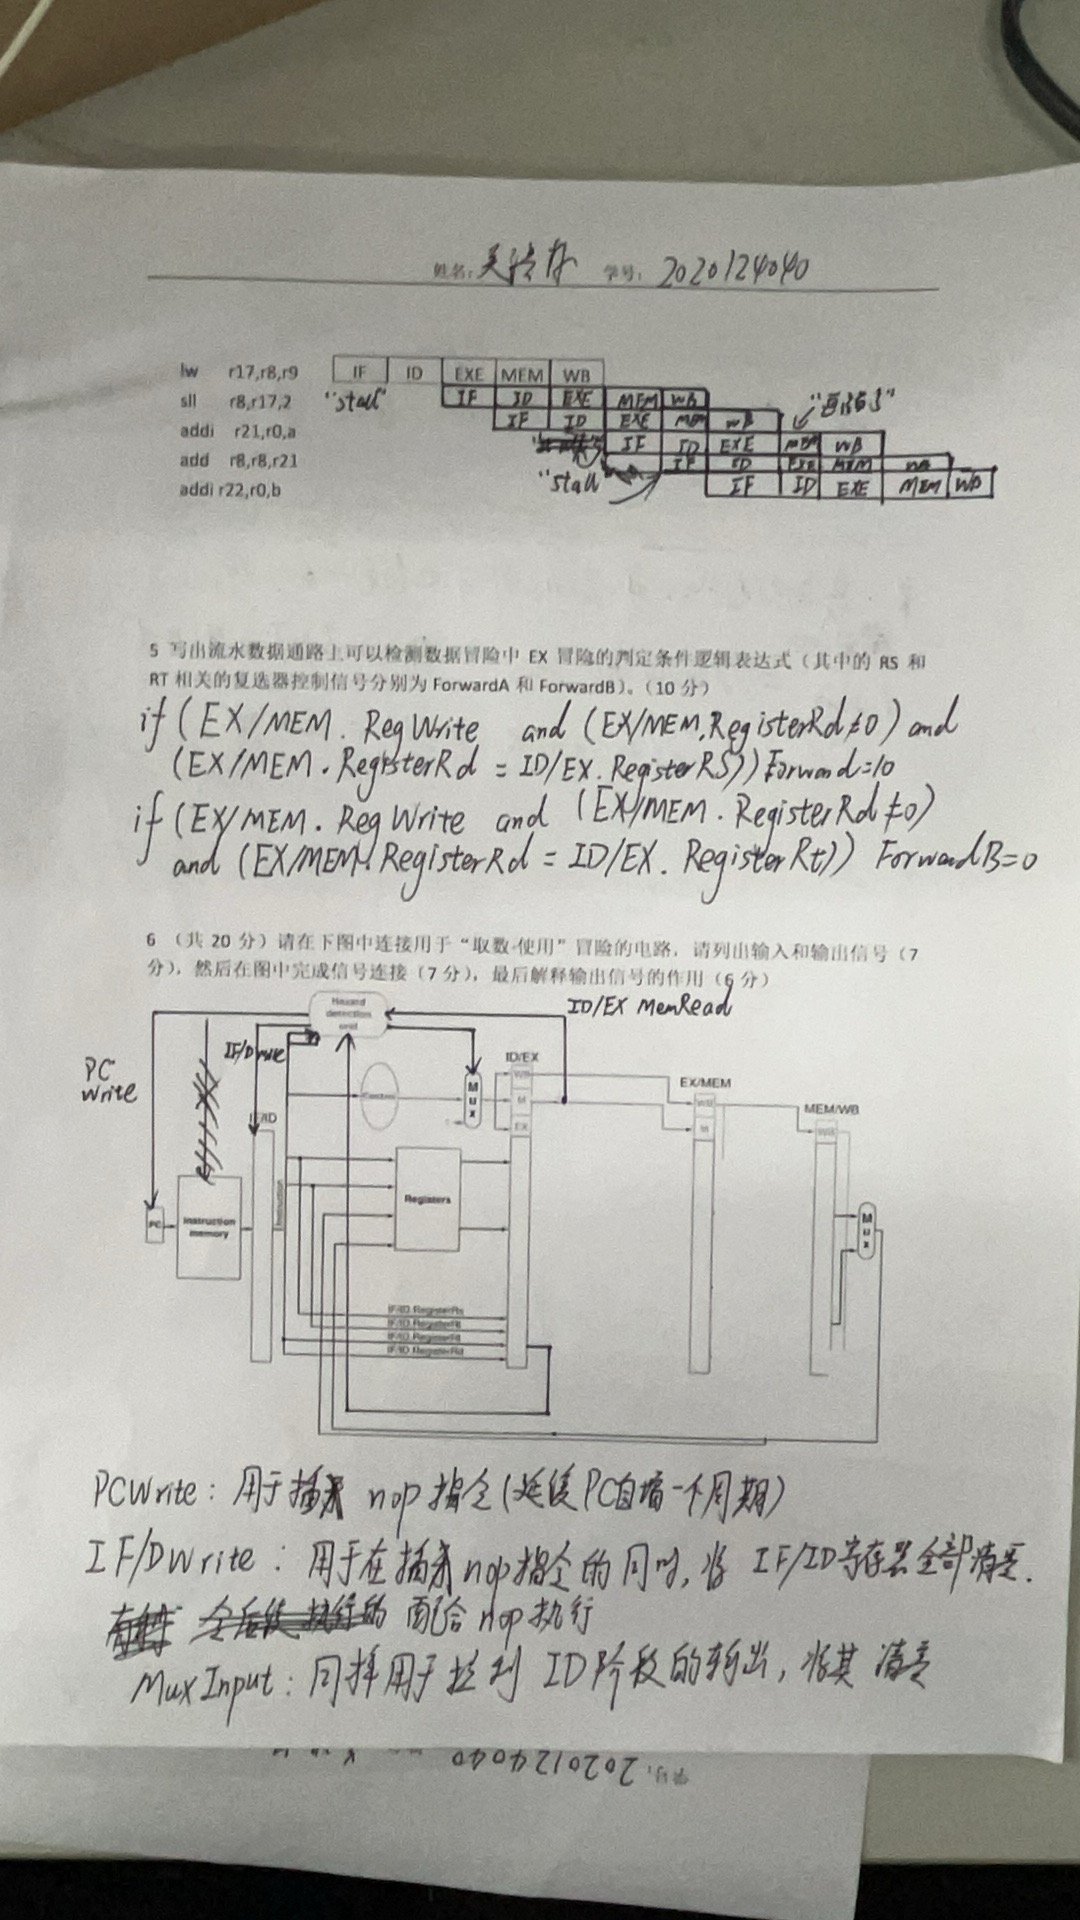 姓名: 学号: 2020124040
lw r17,r8,r9 IF ID EXE MEM WB
sll r8,r17,2 "stall" IF ID EXE MEM WB
addi r21,r0,a IF ID EXE MEM WB
add r8,r8,r21 IF ID EXE MEM WB
"stall" IF ID EXE MEM WB
addi r22,r0,b IF ID EXE MEM WB
5 写出流水数据通路上可以检测数据冒险中 EX 冒险的判定条件逻辑表达式（其中的 RS 和
RT 相关的复选器控制信号分别为 ForwardA 和 ForwardB）。（10 分）
if (EX/MEM. RegWrite and (EX/MEM.RegisterRd≠0) and
(EX/MEM. RegisterRd = ID/EX. RegisterRS)) Forward=10
if (EX/MEM. RegWrite and (EX/MEM. RegisterRd≠0)
and (EX/MEM. RegisterRd = ID/EX. RegisterRt)) ForwardB=0
6 （共 20 分）请在下图中连接用于“取数-使用”冒险的电路，请列出输入和输出信号（7
分），然后在图中完成信号连接（7 分），最后解释输出信号的作用（6 分）
Hazard
detection
unit
ID/EX MemRead
PC
Write
IF/Dwrite
IF/ID
Control
Mux
ID/EX
WB
M
EX
EX/MEM
WB
M
MEM/WB
WB
PC
Instruction
memory
Instruction
Registers
Mux
IF/ID.RegisterRs
IF/ID.RegisterRt
IF/ID.RegisterRt
IF/ID.RegisterRd
PCWrite: 用于插入 nop 指令(延缓PC自增一个周期)
IF/DWrite: 用于在插入nop指令的同时, 将 IF/ID寄存器全部清零.
配合nop执行
MuxInput: 同样用于 ID阶段的输出, 将其 清零
学号: 2020124040